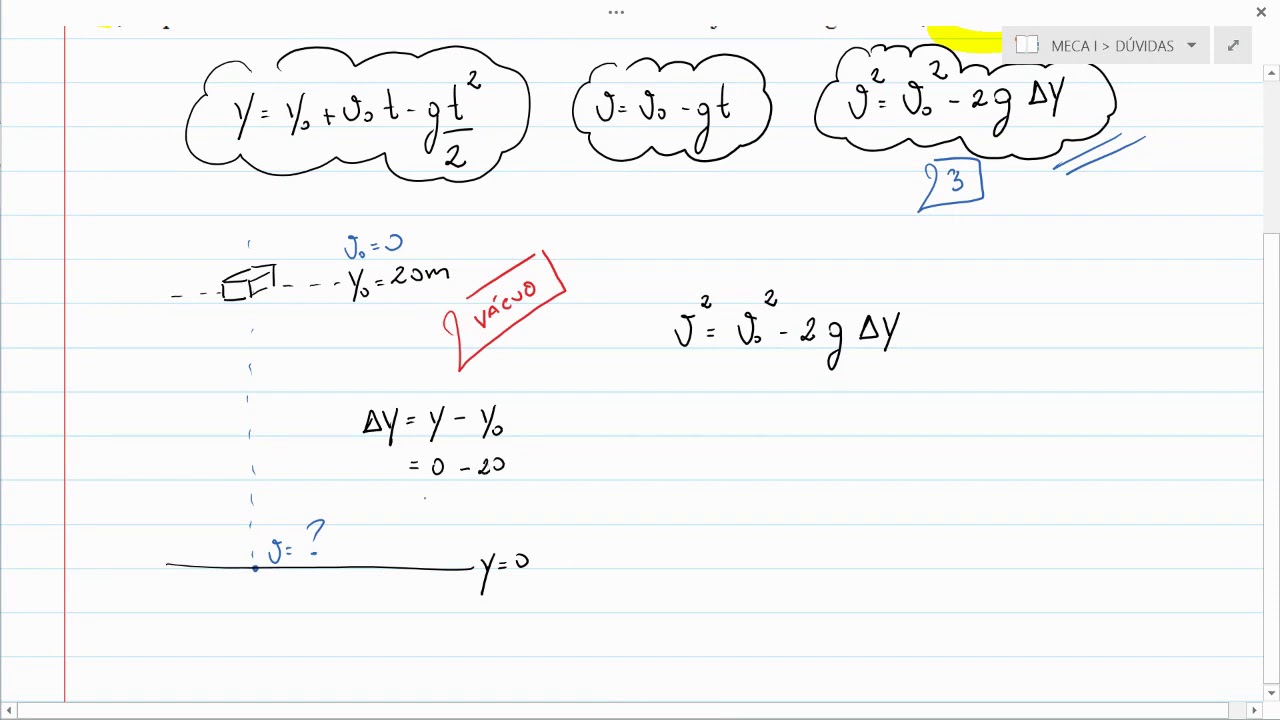 MECA I > DÚVIDAS
y = y₀ + v₀ t - g t²/2
v = v₀ - g t
v² = v₀² - 2 g Δy
3
v₀ = 0
y₀ = 20m
VÁCUO
v² = v₀² - 2 g Δy
Δy = y - y₀
= 0 - 20
v = ?
y = 0